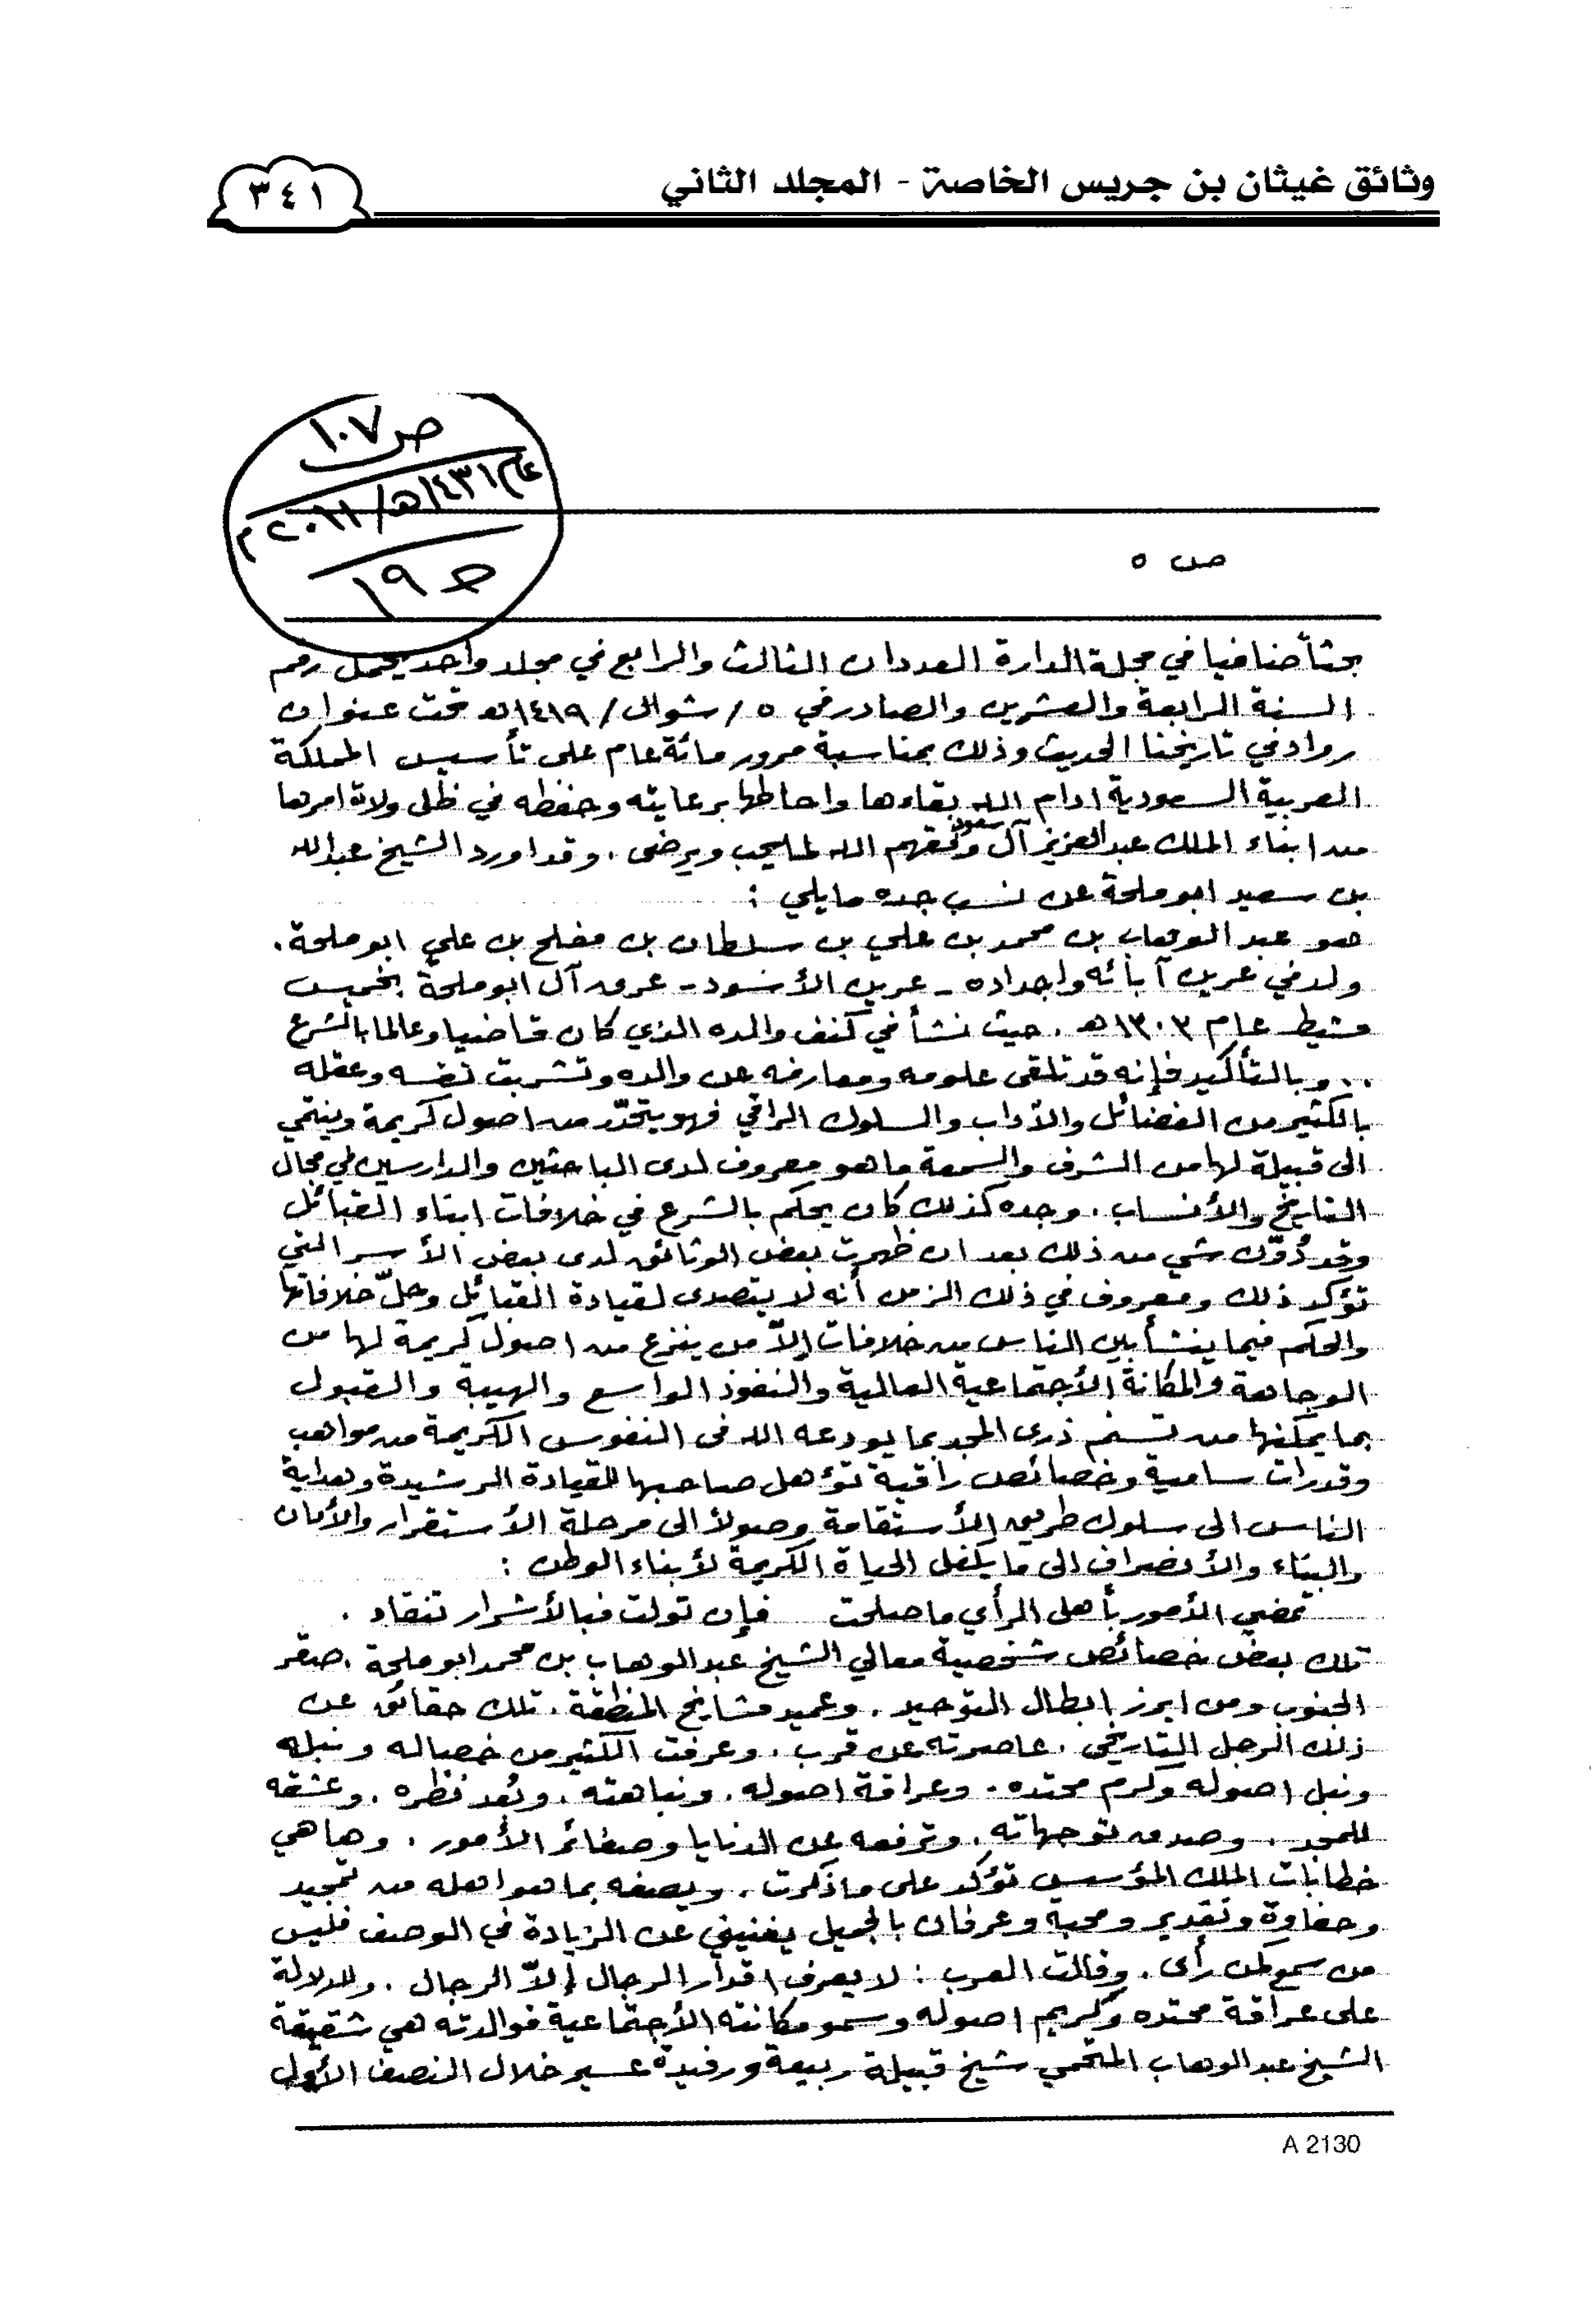 وثائق غيثان بن جريس الخاصة - المجلد الثاني
٣٤١
ص ١٠٧
عام ١٤٣١هـ/٢٠١١م
ص ١٩
ص ٥
بحثاً ضافيا في مجلة الدارة العددان الثالث والرابع في مجلد واحد يحمل رقم
السنة الرابعة والعشرين والصادر في ٥/شوال/١٤١٩هـ تحت عنوان
رواد في تاريخنا الحديث وذلك بمناسبة مرور مائة عام على تأسيس المملكة
العربية السعودية ادام الله بقاءها واحاطها برعايته وحفظه في ظل ولاة امرها
من ابناء الملك عبدالعزيز آل سعود وفقهم الله لما يحب ويرضى . وقد اورد الشيخ عبدالله
بن سعيد ابو ملحة عن نسب جده مايلي :
هو عبد الوهاب بن محمد بن علي بن سلطان بن مفلح بن علي ابو ملحة .
ولد في عرين آبائه واجداده - عرين الأسود - عرق آل ابو ملحة بخميس
مشيط عام ١٣٠٣هـ . حيث نشأ في كنف والده الذي كان قاضيا وعالما بالشرع
.. وبالتأكيد فإنه قد تلقى علومه ومعارفه عن والده وتشربت نفسه وعقله
بالكثير من الفضائل والآداب والسلوك الراقي فهو يتحدّر من اصول كريمة وينتمي
الى قبيلة لها من الشرف والسمعة ما هو معروف لدى الباحثين والدارسين في مجال
التاريخ والأنساب . وجده كذلك كان يحكم بالشرع في خلافات ابناء القبائل
وقد دُوّن شي من ذلك بعد ان ظهرت بعض الوثائق لدى بعض الأسر التي
تؤكد ذلك ومعروف في ذلك الزمن أنه لا يتصدى لقيادة القبائل وحلّ خلافاتها
والحكم فيما ينشأ بين الناس من خلافات إلاّ من ينزع من اصول كريمة لها من
الوجاهة والمكانة الأجتماعية العالية والنفوذ الواسع والهيبة والقبول
بما يمكنها من تسنم ذرى المجد بما يودعه الله في النفوس الكريمة من مواهب
وقدرات سامية وخصائص راقية تؤهل صاحبها للقيادة الرشيدة وهداية
الناس الى سلوك طريق الأستقامة وصولاً الى مرحلة الأستقرار والأمان
والبناء والأنصراف الى ما يكفل الحياة الكريمة لأبناء الوطن :
تمضي الأمور بأهل الرأي ما صلحت فإن تولت فبالأشرار تنقاد .
تلك بعض خصائص شخصية معالي الشيخ عبد الوهاب بن محمد ابو ملحة . صقر
الجنوب ومن ابرز ابطال التوحيد . وعميد مشايخ المنطقة . تلك حقائق عن
ذلك الرجل التاريخي . عاصرته عن قرب . وعرفت الكثير من خصاله ونبله
ونبل اصوله وكرم محتده . وعراقة اصوله . ونباهته . وبُعد نظره . وعشقه
للمجد . وصدق توجهاته . وترفعه عن الدنايا وصغائر الأمور . وها هي
خطابات الملك المؤسس تؤكد على ما ذكرت . ويصفه بما هو اهله من تمجيد
وحفاوة وتقدير ومحبة وعرفان بالجميل يغنيني عن الزيادة في الوصف فليس
من سمع كمن رأى . وقالت العرب : لا يعرف اقدار الرجال إلاّ الرجال . وللدلالة
على عراقة محتده وكريم اصوله وسمو مكانته الأجتماعية فوالدته هي شقيقة
الشيخ عبد الوهاب المتحمي شيخ قبيلة ربيعة ورفيدة عسير خلال النصف الأول
A 2130